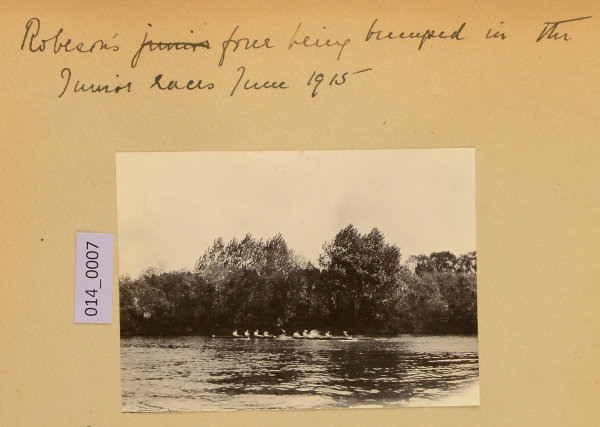 Robeson's junior four being bumped in the
Junior races June 1915
014_0007